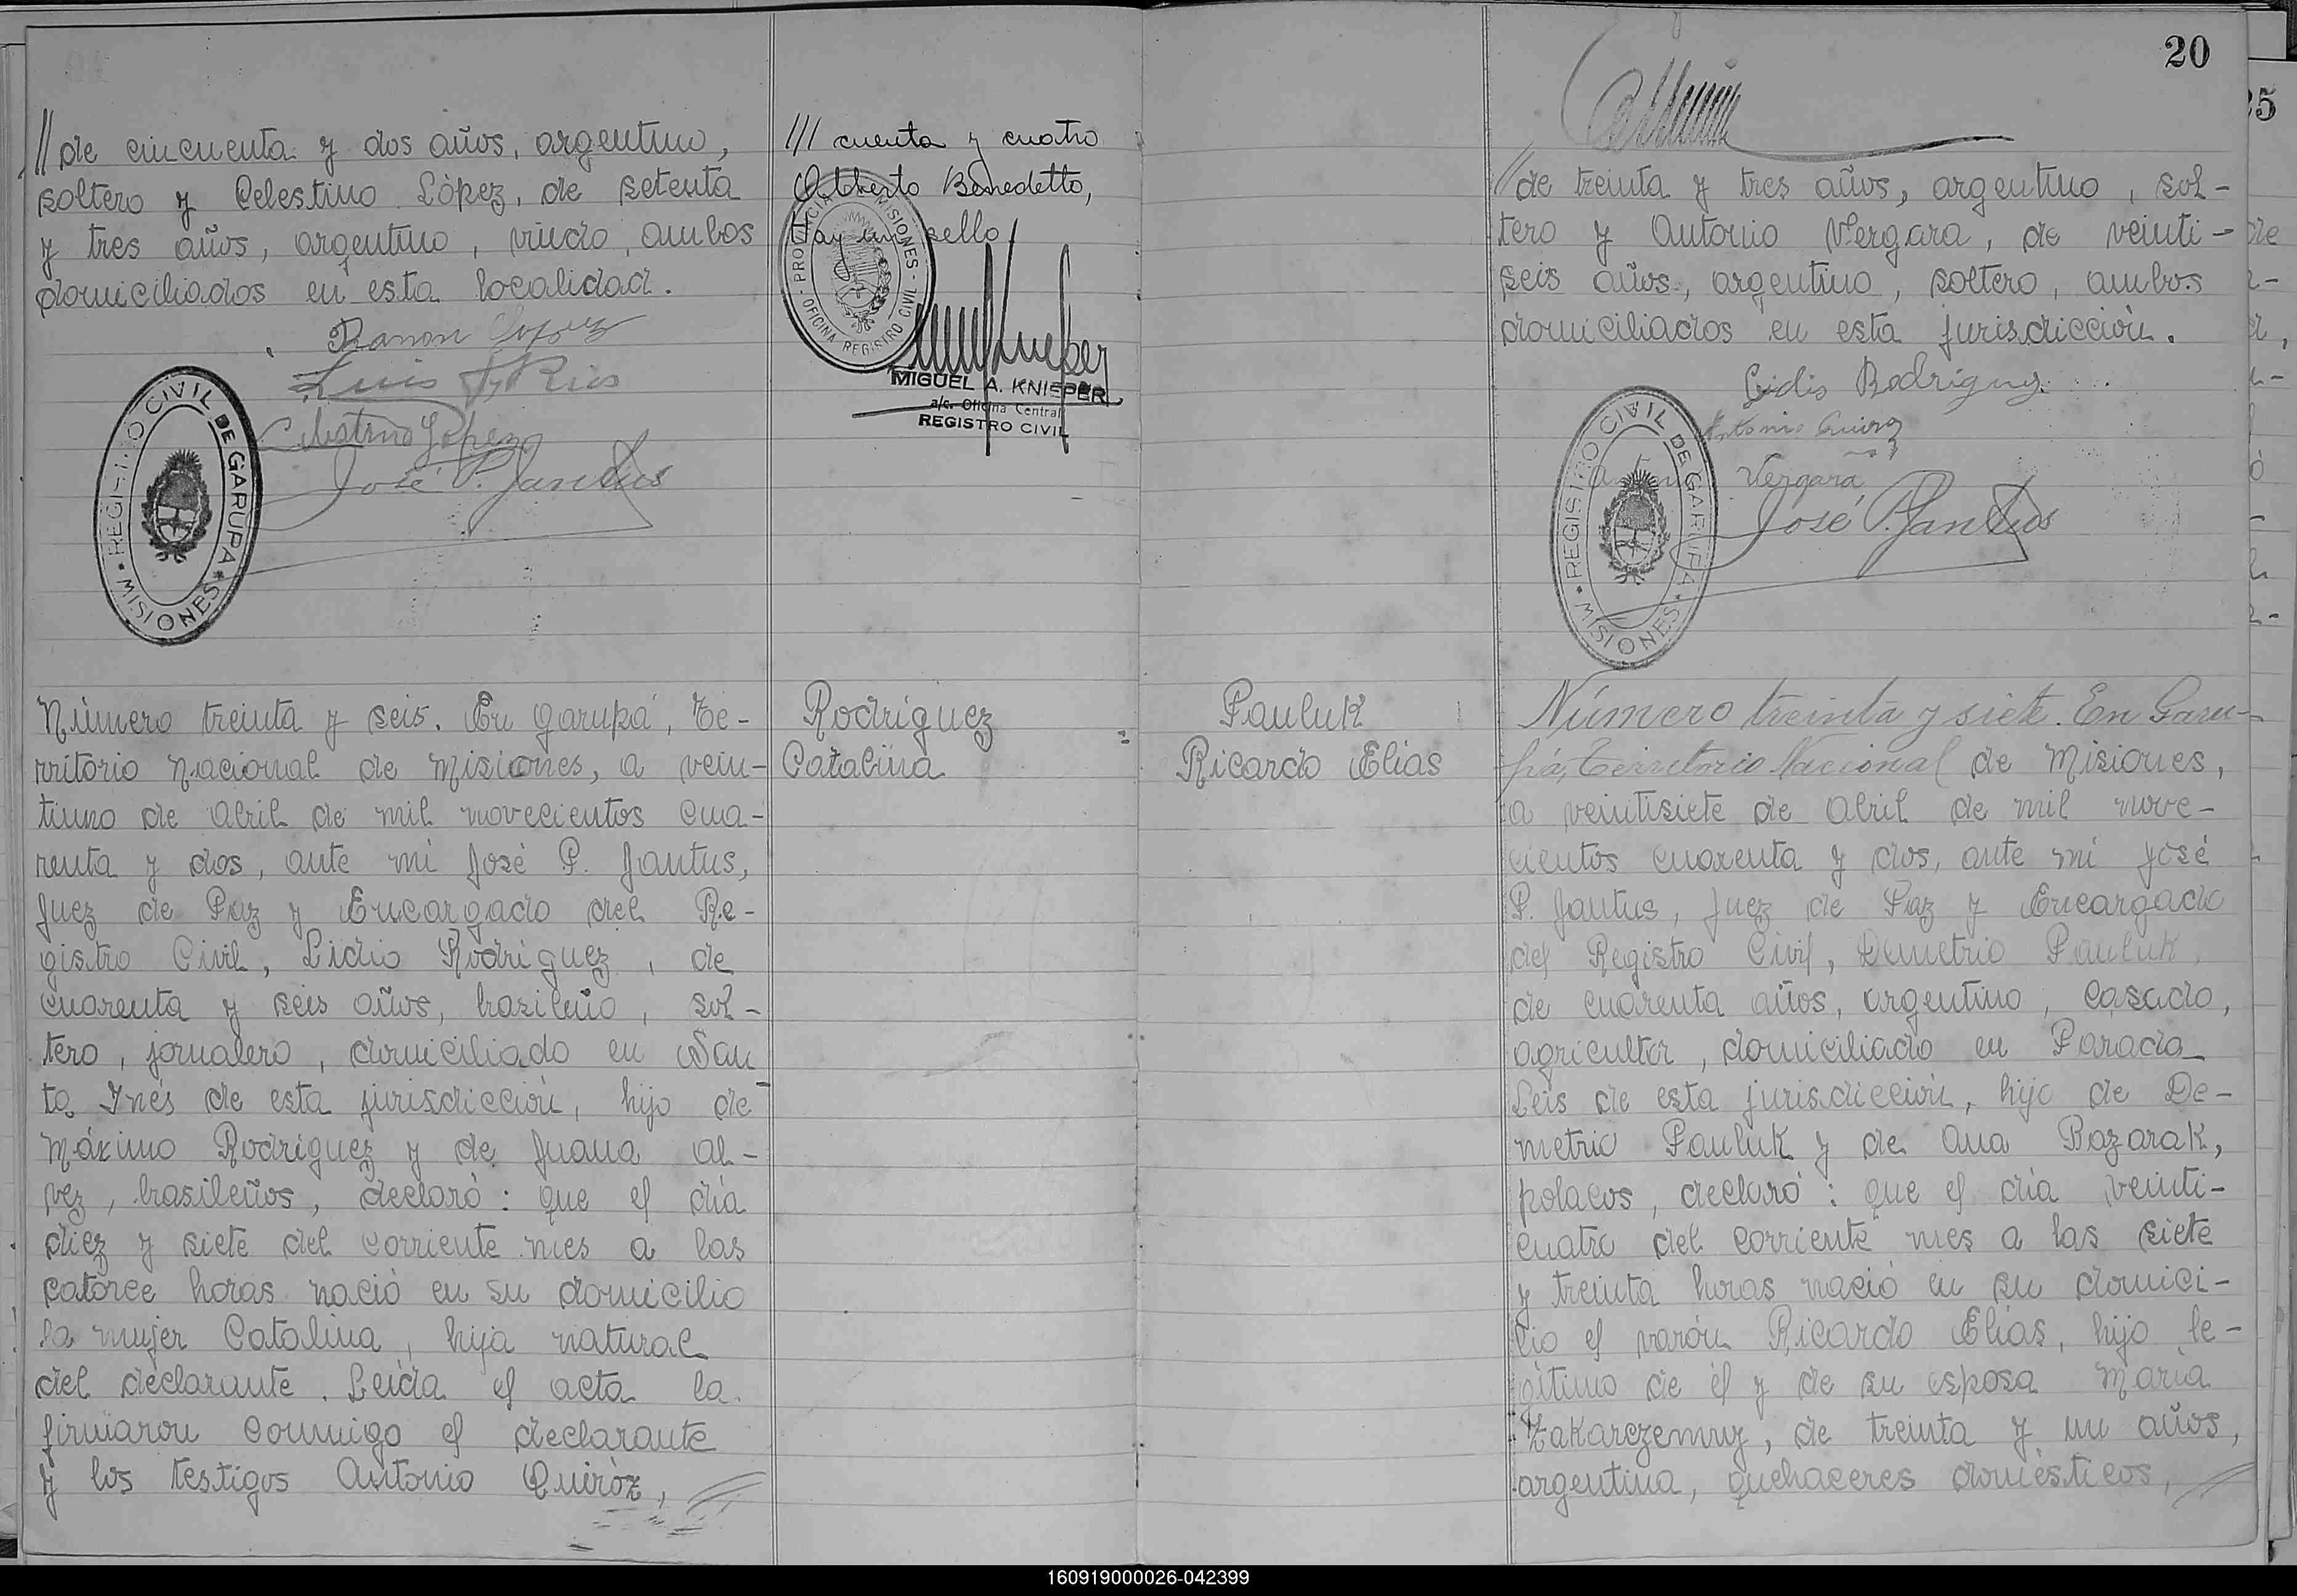 // de cincuenta y dos años, argentino,
soltero y Celestino López, de setenta
y tres años, argentino, viudo, ambos
domiciliados en esta localidad.
Ramon Lopez
Luis F. Rios
Celestino Lopez
José P. Jantus
REGISTRO CIVIL DE GARUPA
* MISIONES *
Número treinta y seis. En Garupá, Te-
rritorio Nacional de Misiones, a vein-
tiuno de Abril de mil novecientos cua-
renta y dos, ante mí José P. Jantus,
Juez de Paz y Encargado del Re-
gistro Civil, Lidio Rodríguez, de
cuarenta y seis años, brasileño, sol-
tero, jornalero, domiciliado en San
ta Inés de esta jurisdicción, hijo de
Máximo Rodríguez y de Juana Al-
vez, brasileños, declaró: que el día
diez y siete del corriente mes a las
catorce horas nació en su domicilio
la mujer Catalina, hija natural
del declarante. Leída el acta la
firmaron conmigo el declarante
y los testigos Antonio Quiróz,
/// cuenta y cuatro
Alberto Benedetto,
Hay un sello
PROVINCIA DE MISIONES
OFICINA REGISTRO CIVIL
MIGUEL A. KNIEPER
a/c. Oficina Central
REGISTRO CIVIL
Rodríguez
Catalina
Pauluk
Ricardo Elías
20
// de treinta y tres años, argentino, sol-
tero y Antonio Vergara, de veinti-
seis años, argentino, soltero, ambos
domiciliados en esta jurisdicción.
Lidio Rodriguez
Antonio Quiroz
Vergara
José P. Jantus
REGISTRO CIVIL DE GARUPA
* MISIONES *
Número treinta y siete. En Garu-
pá, Territorio Nacional de Misiones,
a veintisiete de Abril de mil nove-
cientos cuarenta y dos, ante mí José
P. Jantus, Juez de Paz y Encargado
del Registro Civil, Demetrio Pauluk,
de cuarenta años, argentino, casado,
agricultor, domiciliado en Parada
Leis de esta jurisdicción, hijo de De-
metrio Pauluk y de Ana Bazarak,
polacos, declaró: que el día veinti-
cuatro del corriente mes a las siete
y treinta horas nació en su domici-
lio el varón Ricardo Elías, hijo le-
gítimo de él y de su esposa María
Zakarczemny, de treinta y un años,
argentina, quehaceres domésticos,
160919000026-042399